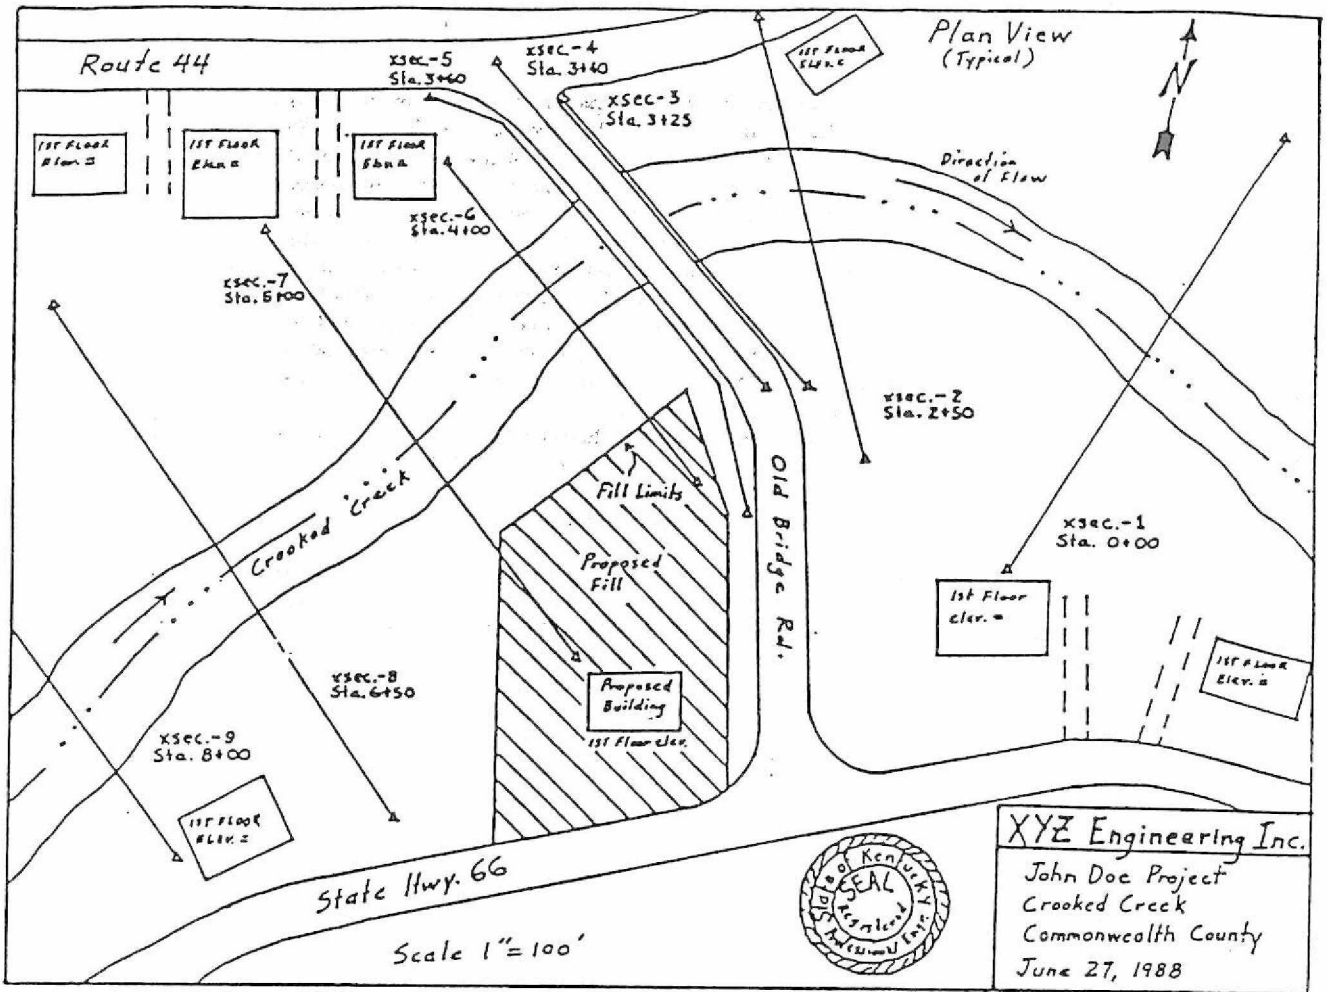 Plan View
(Typical)
N
Route 44
xsec.-5
Sta. 3+60
xsec.-4
Sta. 3+40
xsec-3
Sta. 3+25
1ST FLOOR
Elev.=
1ST FLOOR
Elev.=
1ST FLOOR
Elev.=
1ST FLOOR
Elev.=
Direction
of Flow
xsec.-6
Sta. 4+00
xsec.-7
Sta. 5+00
xsec.-2
Sta. 2+50
Fill Limits
Old Bridge Rd.
xsec.-1
Sta. 0+00
Crooked Creek
Proposed
Fill
1st Floor
elev. =
1ST FLOOR
Elev. =
xsec.-8
Sta. 6+50
Proposed
Building
1st Floor elev.
xsec.-9
Sta. 8+00
1ST FLOOR
Elev. =
State Hwy. 66
Scale 1"=100'
State of Kentucky
SEAL
Registered
Professional Engr.
XYZ Engineering Inc.
John Doe Project
Crooked Creek
Commonwealth County
June 27, 1988